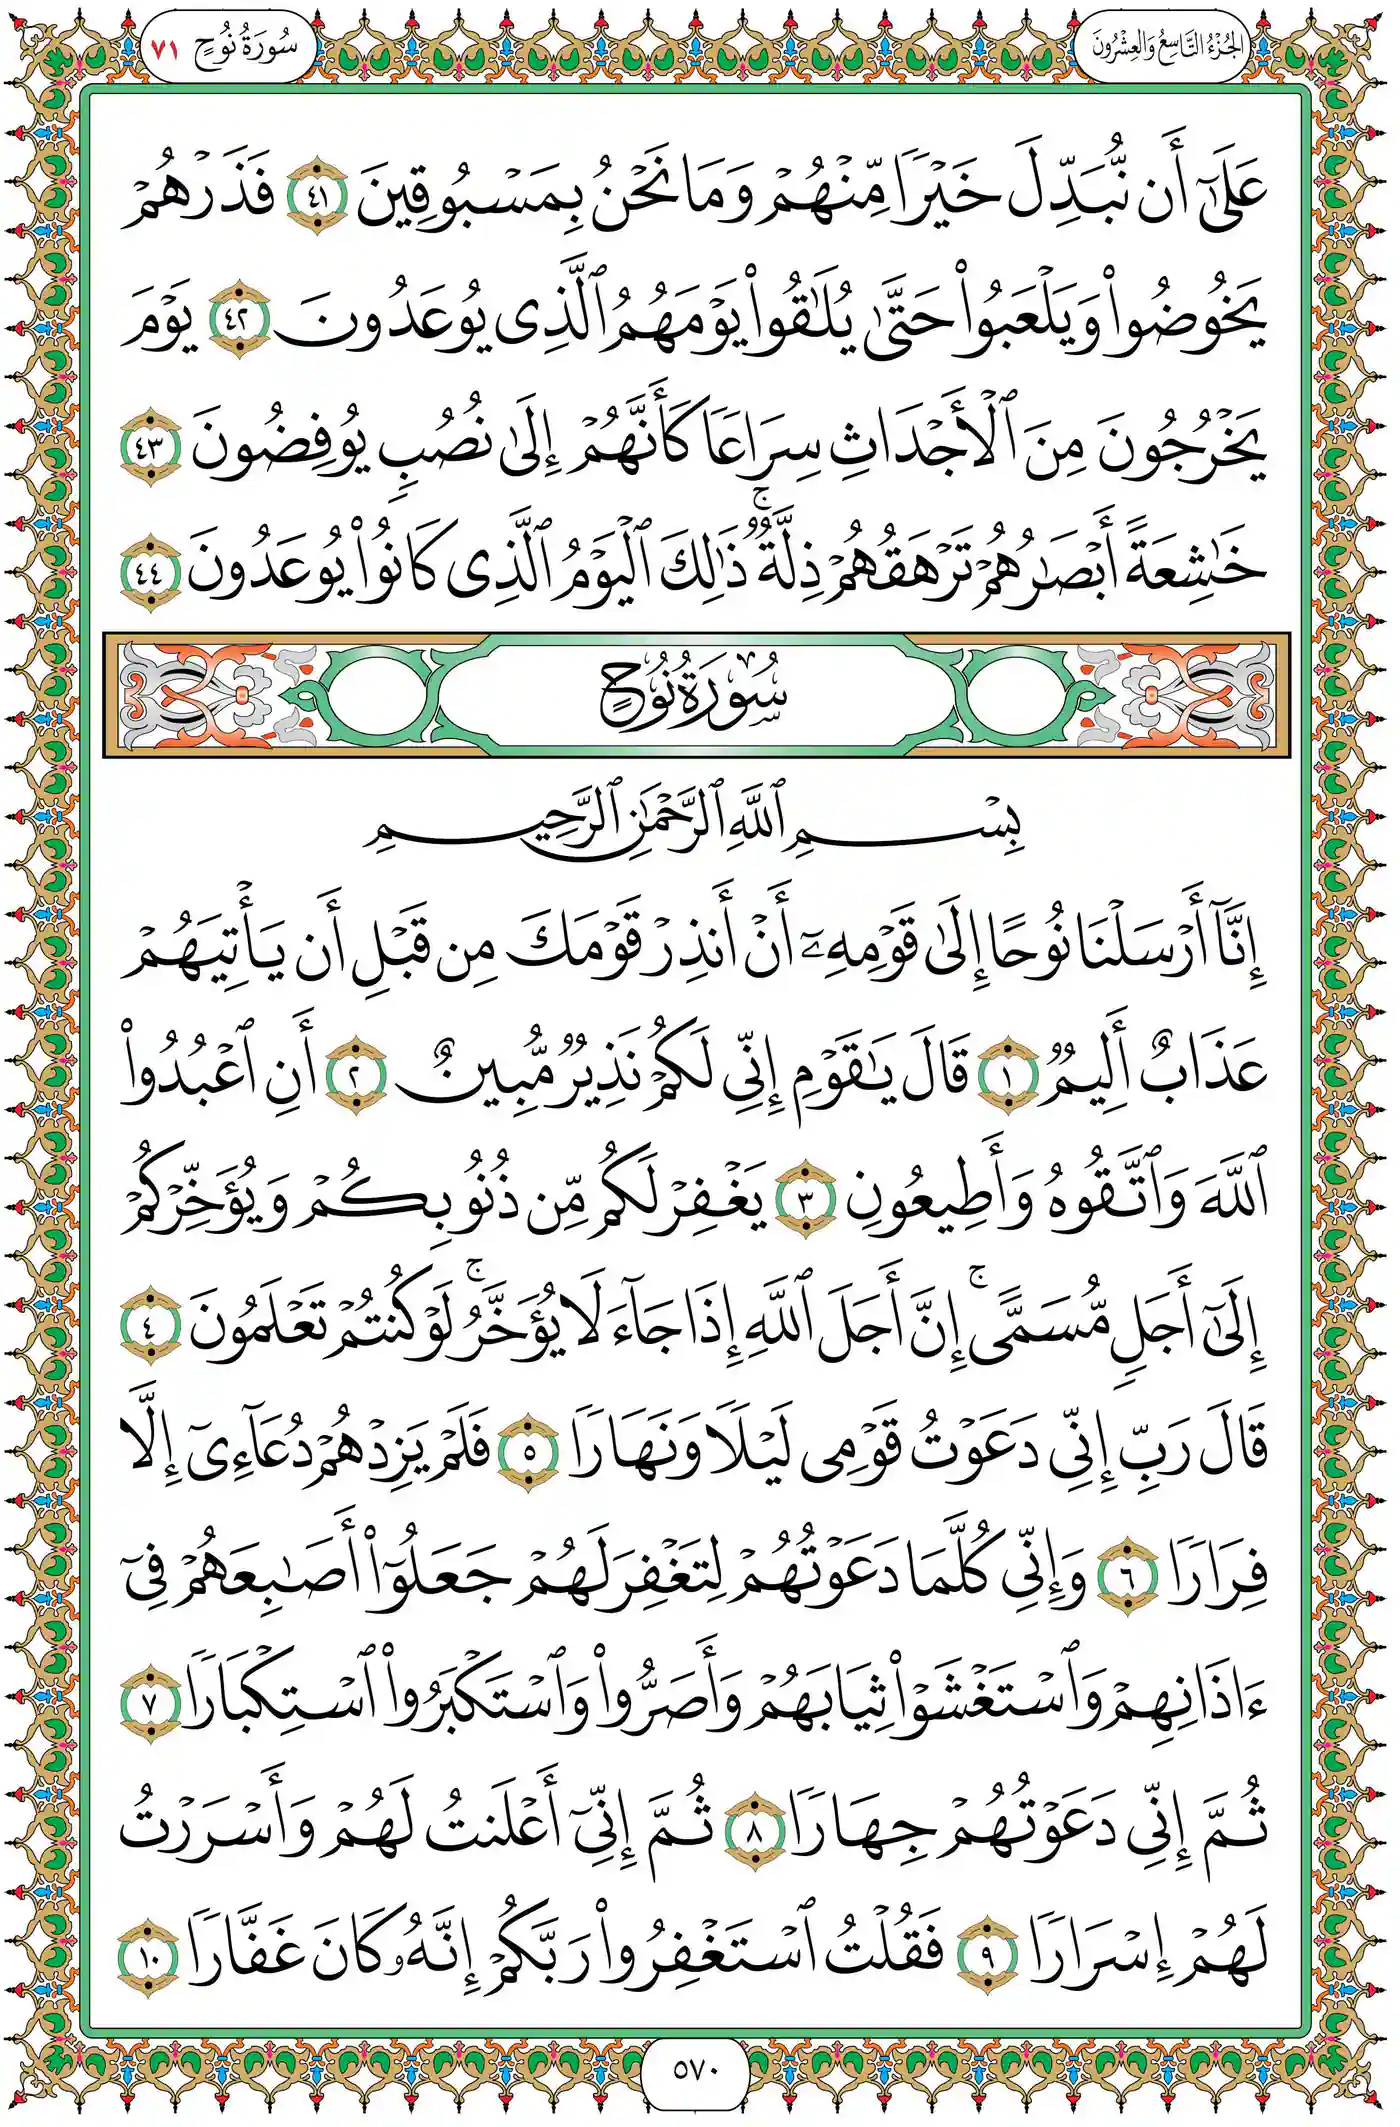 الجُزْءُ التَّاسِعُ وَالعِشْرُونَ
سُورَةُ نُوحٍ ٧١
عَلَىٰٓ أَن نُّبَدِّلَ خَيْرًا مِّنْهُمْ وَمَا نَحْنُ بِمَسْبُوقِينَ ٤١ فَذَرْهُمْ
يَخُوضُوا۟ وَيَلْعَبُوا۟ حَتَّىٰ يُلَٰقُوا۟ يَوْمَهُمُ ٱلَّذِى يُوعَدُونَ ٤٢ يَوْمَ
يَخْرُجُونَ مِنَ ٱلْأَجْدَاثِ سِرَاعًا كَأَنَّهُمْ إِلَىٰ نُصُبٍ يُوفِضُونَ ٤٣
خَٰشِعَةً أَبْصَٰرُهُمْ تَرْهَقُهُمْ ذِلَّةٌ ۚ ذَٰلِكَ ٱلْيَوْمُ ٱلَّذِى كَانُوا۟ يُوعَدُونَ ٤٤
سُورَةُ نُوحٍ
بِسْمِ ٱللَّهِ ٱلرَّحْمَٰنِ ٱلرَّحِيمِ
إِنَّآ أَرْسَلْنَا نُوحًا إِلَىٰ قَوْمِهِۦٓ أَنْ أَنذِرْ قَوْمَكَ مِن قَبْلِ أَن يَأْتِيَهُمْ
عَذَابٌ أَلِيمٌ ١ قَالَ يَٰقَوْمِ إِنِّى لَكُمْ نَذِيرٌ مُّبِينٌ ٢ أَنِ ٱعْبُدُوا۟
ٱللَّهَ وَٱتَّقُوهُ وَأَطِيعُونِ ٣ يَغْفِرْ لَكُم مِّن ذُنُوبِكُمْ وَيُؤَخِّرْكُمْ
إِلَىٰٓ أَجَلٍ مُّسَمًّى ۚ إِنَّ أَجَلَ ٱللَّهِ إِذَا جَآءَ لَا يُؤَخَّرُ ۚ لَوْ كُنتُمْ تَعْلَمُونَ ٤
قَالَ رَبِّ إِنِّى دَعَوْتُ قَوْمِى لَيْلًا وَنَهَارًا ٥ فَلَمْ يَزِدْهُمْ دُعَآءِىٓ إِلَّا
فِرَارًا ٦ وَإِنِّى كُلَّمَا دَعَوْتُهُمْ لِتَغْفِرَ لَهُمْ جَعَلُوٓا۟ أَصَٰبِعَهُمْ فِىٓ
ءَاذَانِهِمْ وَٱسْتَغْشَوْا۟ ثِيَابَهُمْ وَأَصَرُّوا۟ وَٱسْتَكْبَرُوا۟ ٱسْتِكْبَارًا ٧
ثُمَّ إِنِّى دَعَوْتُهُمْ جِهَارًا ٨ ثُمَّ إِنِّىٓ أَعْلَنتُ لَهُمْ وَأَسْرَرْتُ
لَهُمْ إِسْرَارًا ٩ فَقُلْتُ ٱسْتَغْفِرُوا۟ رَبَّكُمْ إِنَّهُۥ كَانَ غَفَّارًا ١٠
٥٧٠